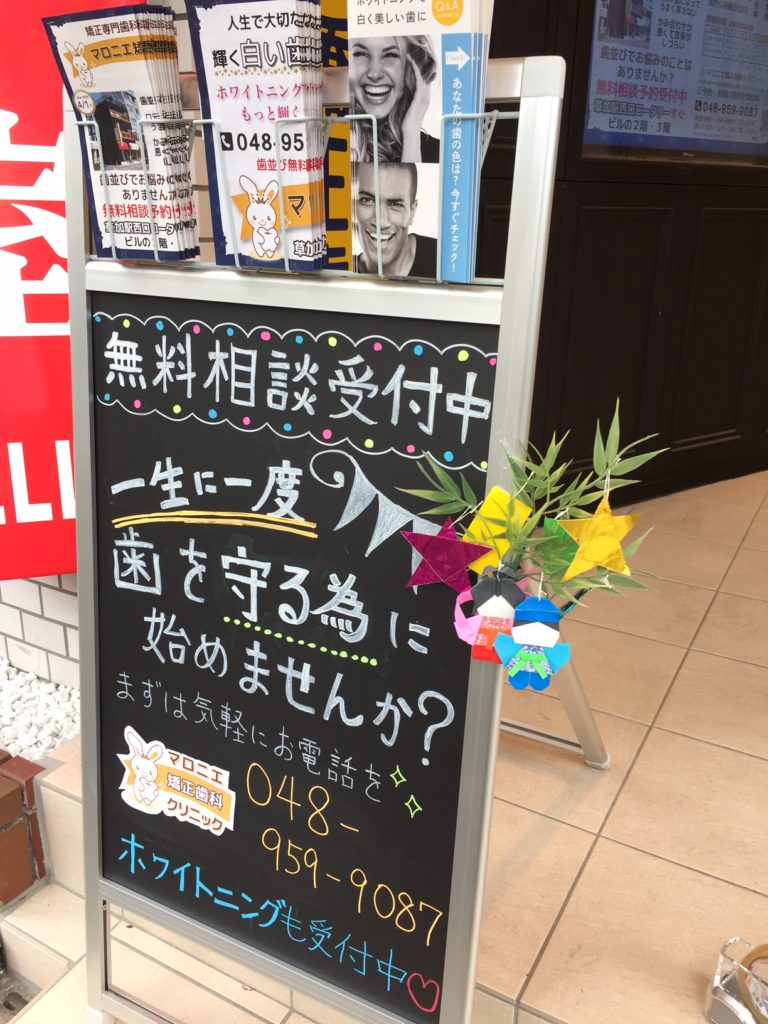 4/1
マロニエ
歯並びでお悩みのことは
ありません
無料相談予約受付中
草加駅西口ロータリー
ビルの2階・
人生で大切な
輝く白い歯
ホワイトニング
もっと輝く
048-95
歯並び無料
マロ
草加
ホワイトニングで
白く美しい歯に
Q&A
Check
あなたの歯の色は?今すぐチェック!
かみ合わせが
悪くて食事が
しづらい
歯並びでお悩みのことは
ありませんか?
無料相談予約受付中
048-959-9087
草加駅西口ロータリーすぐ
ビルの2階・3階
無料相談受付中
一生に一度
歯を守る為に
始めませんか?
まずは気軽にお電話を
マロニエ
矯正歯科
クリニック
048-
959-9087
ホワイトニングも受付中